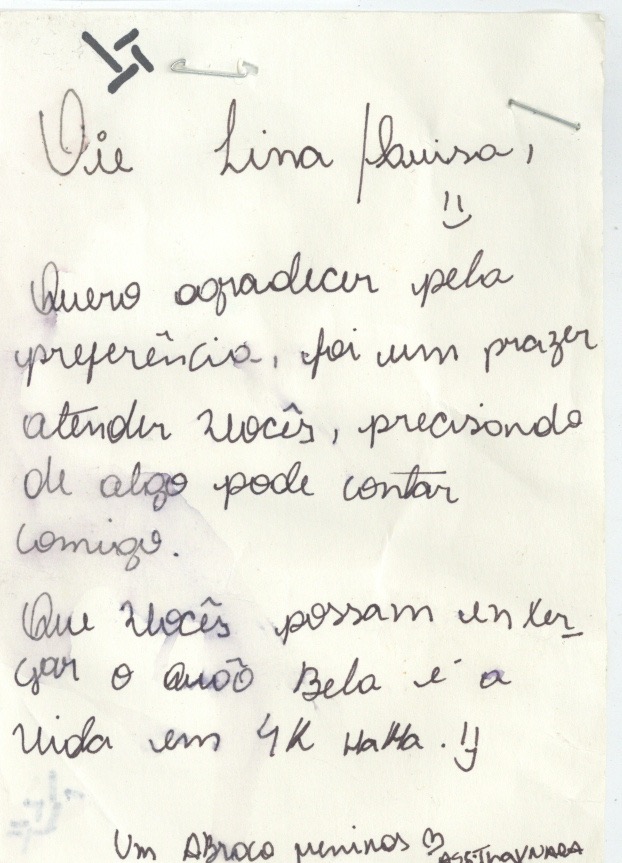 Oie Lina /Luisa,
Quero agradecer pela
preferência, foi um prazer
atender vocês, precisando
de algo pode contar
comigo.
Que vocês possam enxer_
gar o quão Bela é a
vida em 4K HaHa.
Um ABraço meninas
ASS:Thaynara